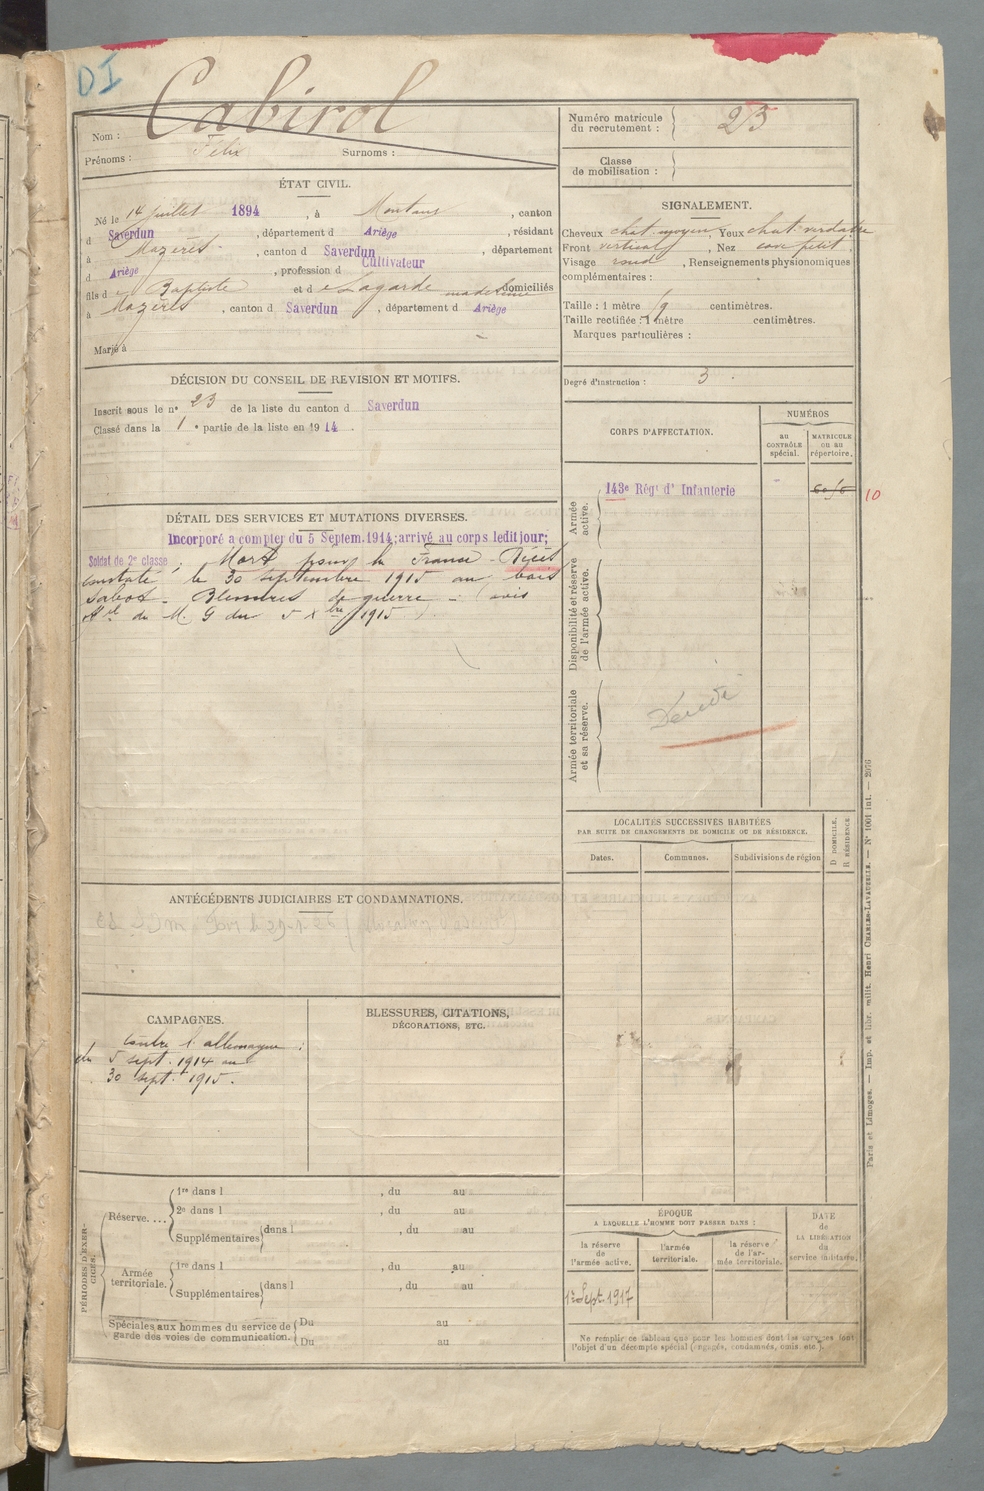 DI
Cabirol
Nom :
Prénoms : Félix Surnoms :
Numéro matricule du recrutement : 23
Classe de mobilisation :
ÉTAT CIVIL.
Né le 14 juillet 1894, à Montaut, canton
d Saverdun, département d Ariège, résidant
à Mazères, canton d Saverdun, département
d Ariège, profession d Cultivateur
fils d e Baptiste et d e Lagarde madeleine domiciliés
à Mazères, canton d Saverdun, département d Ariège
Marié à
SIGNALEMENT.
Cheveux chat. moyen, Yeux chat. verdatre
Front vertical, Nez cave petit.
Visage rond, Renseignements physionomiques
complémentaires :
Taille : 1 mètre centimètres.
Taille rectifiée : 1 mètre centimètres.
Marques particulières :
Degré d'instruction : 3.
DÉCISION DU CONSEIL DE REVISION ET MOTIFS.
Inscrit sous le n° 23 de la liste du canton d Saverdun
Classé dans la 1e partie de la liste en 1914.
CORPS D'AFFECTATION.
NUMÉROS
au CONTRÔLE spécial.
MATRICULE ou au répertoire.
Armée active.
143e Régt d'Infanterie
10
Disponibilité et réserve de l'armée active.
Armée territoriale et sa réserve.
Décédé
DÉTAIL DES SERVICES ET MUTATIONS DIVERSES.
Incorporé a compter du 5 Septem. 1914; arrivé au corps ledit jour;
Soldat de 2e classe, Mort pour la France - Décès
constaté le 30 septembre 1915 au bois
Sabot - Blessures de guerre - (avis
du M. G du 5 xbre 1915
LOCALITÉS SUCCESSIVES HABITÉES
PAR SUITE DE CHANGEMENTS DE DOMICILE OU DE RÉSIDENCE.
Dates. Communes. Subdivisions de région
D DOMICILE.
R RÉSIDENCE
ANTÉCÉDENTS JUDICIAIRES ET CONDAMNATIONS.
CAMPAGNES.
Contre l'allemagne :
du 5 sept. 1914 au
30 sept. 1915.
BLESSURES, CITATIONS,
DÉCORATIONS, ETC.
PÉRIODES D'EXERCICES.
Réserve....
1re dans l , du au
2e dans l , du au
Supplémentaires dans l , du au
Armée territoriale.
1re dans l , du au
Supplémentaires dans l , du au
Spéciales aux hommes du service de garde des voies de communication.
Du au
Du au
ÉPOQUE
A LAQUELLE L'HOMME DOIT PASSER DANS :
la réserve de l'armée active.
l'armée territoriale.
la réserve de l'armée territoriale.
DATE de LA LIBÉRATION du service militaire.
1er Sept. 1917
Ne remplir ce tableau que pour les hommes dont les services font
l'objet d'un décompte spécial (engagés, condamnés, omis, etc.).
Paris et Limoges. — Imp. et libr. milit. Henri CHARLES-LAVAUZELLE. — N° 1001 int. — 2976